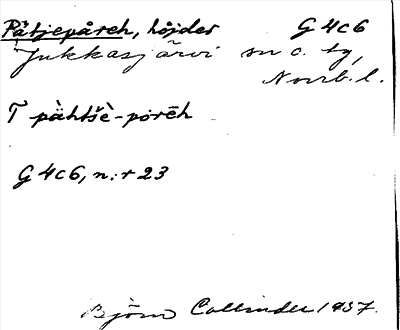 Påtjepåreh, höjder G 4c6
Jukkasjärvi sn o. tg,
Norrb. l.
T pàhtšè-pörēh
G 4c6, n:r 23
Björn Collinder 1937.